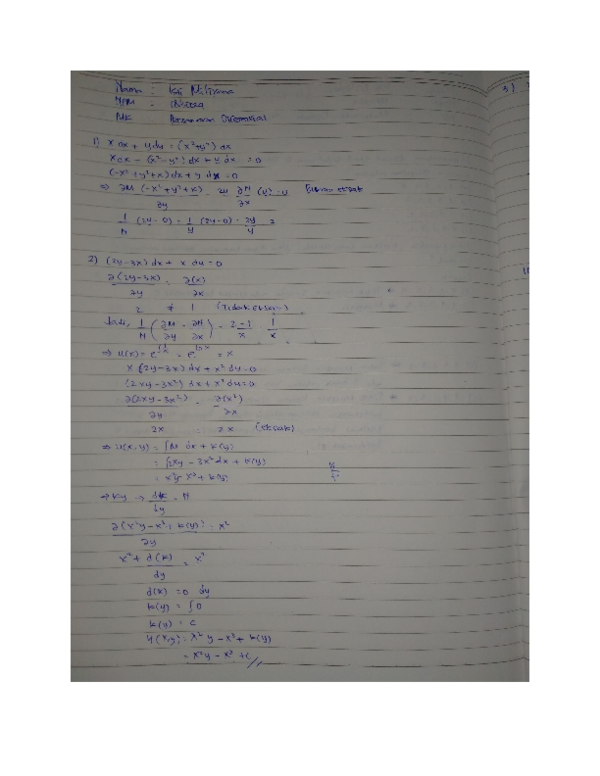 Nama :
NPM :
MK : Persamaan Diferensial
3)
1) x dx + y dy = (x²+y²) dx
x dx - (x²-y²) dx + y dx = 0
(-x²+y²+x) dx + y dx = 0
⇒ ∂M (-x²+y²+x) = ∂N (y) = 0
∂y ∂x
1/N (2y-0) = 1/y (2y-0) = 2y/y =
2) (2y-3x) dx + x dy = 0
∂(2y-3x) = ∂(x)
∂y ∂x
2 ≠ 1 (Tidak eksak)
Jadi, 1/N (∂M/∂y - ∂N/∂x) = 2-1/x = 1/x
⇒ u(x) = = x
x (2y-3x) dx + x² dy = 0
(2xy-3x²) dx + x² dy = 0
∂(2xy-3x²) = ∂(x²)
∂y ∂x
2x = 2x (eksak)
⇒ u(x,y) = ∫M dx + k(y)
= ∫2xy - 3x² dx + k(y)
= x²y - x³ + k(y)
⇒ k y → dk/dy = N
∂(x²y - x³ + k(y)) = x²
∂y
x² + d(k)/dy = x²
d(k) = 0 dy
k(y) = ∫0
k(y) = c
u(x,y) = x² y - x³ + k(y)
= x²y - x³ + c //